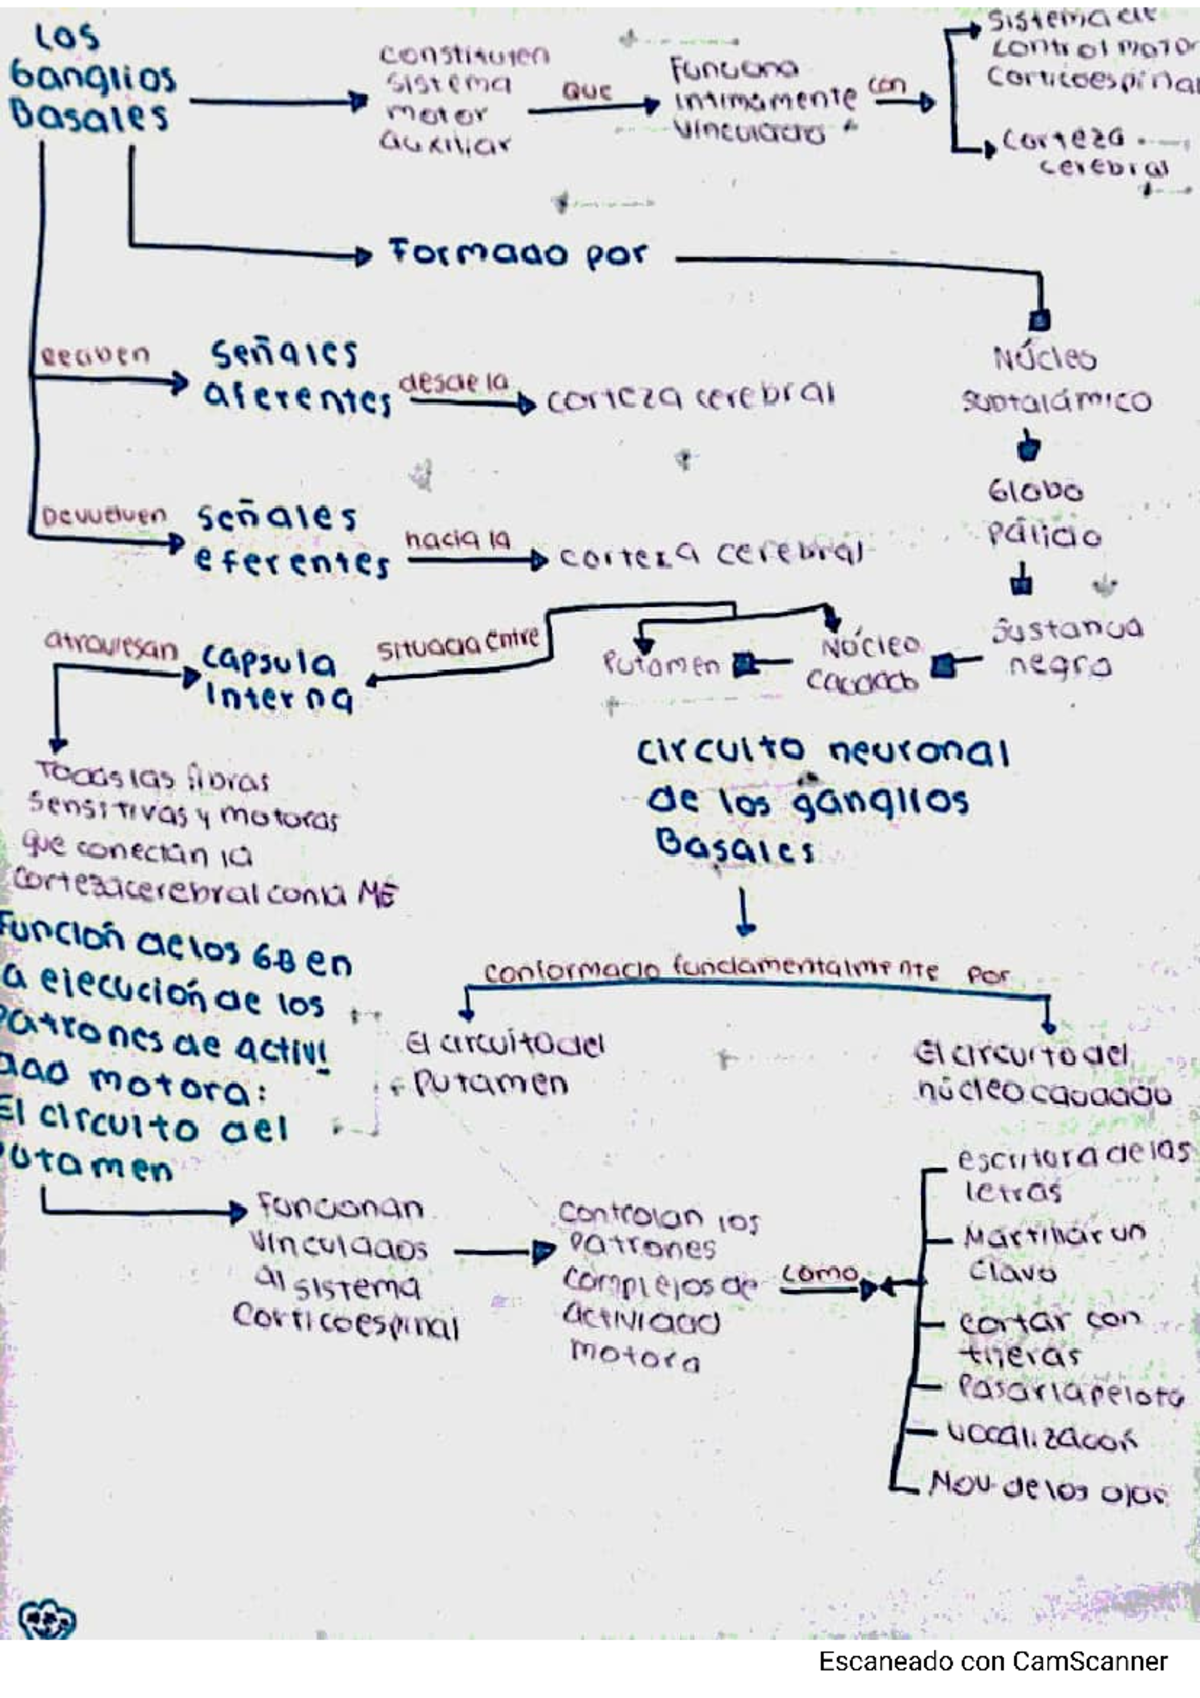 Los
Ganglios
Basales
constituyen
sistema
motor
auxiliar
que
Funciona
intimamente
vinculado
con
Sistema de
control motor
corticoespinal
corteza
cerebral
Formado por
Núcleo
subtalámico
Globo
pálido
Sustancia
negra
Núcleo
caudado
Putamen
Reciben
Señales
aferentes
desde la
corteza cerebral
Devuelven
Señales
eferentes
hacia la
corteza cerebral
atraviesan
capsula
interna
situada entre
Todas las fibras
sensitivas y motoras
que conectan la
corteza cerebral con la ME
circuito neuronal
de los ganglios
Basales
conformado fundamentalmente por
El circuito del
Putamen
El circuito del
núcleo caudado
Función de los GB en
a ejecución de los
Patrones de activi
dad motora:
El circuito del
Putamen
Funcionan
vinculados
al sistema
corticoespinal
controlan los
Patrones
complejos de
actividad
motora
como
escritura de las
letras
Martillar un
clavo
cortar con
tijeras
Pasar la pelota
vocalización
Mov de los ojos
Escaneado con CamScanner